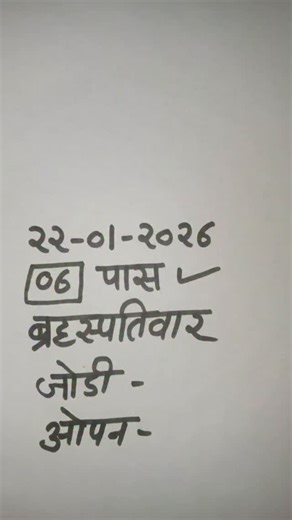 २२-०१-२०२६
०६ पास ✓
ब्रहस्पतिवार
जोडी -
ओपन-